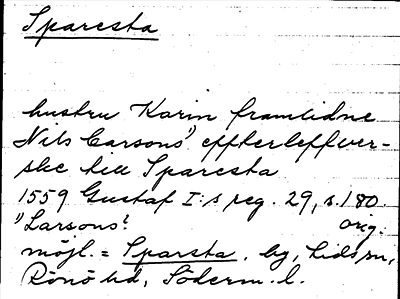 Sparesta
hustru Karin framlidne
Nils Carsons" effterleffver-
ske till Sparesta
1559 Gustaf I:s reg. 29, s. 180.
"Larsons". orig.
möjl. = Sparsta, by, Lids sn,
Rönö hd, Söderm. l.